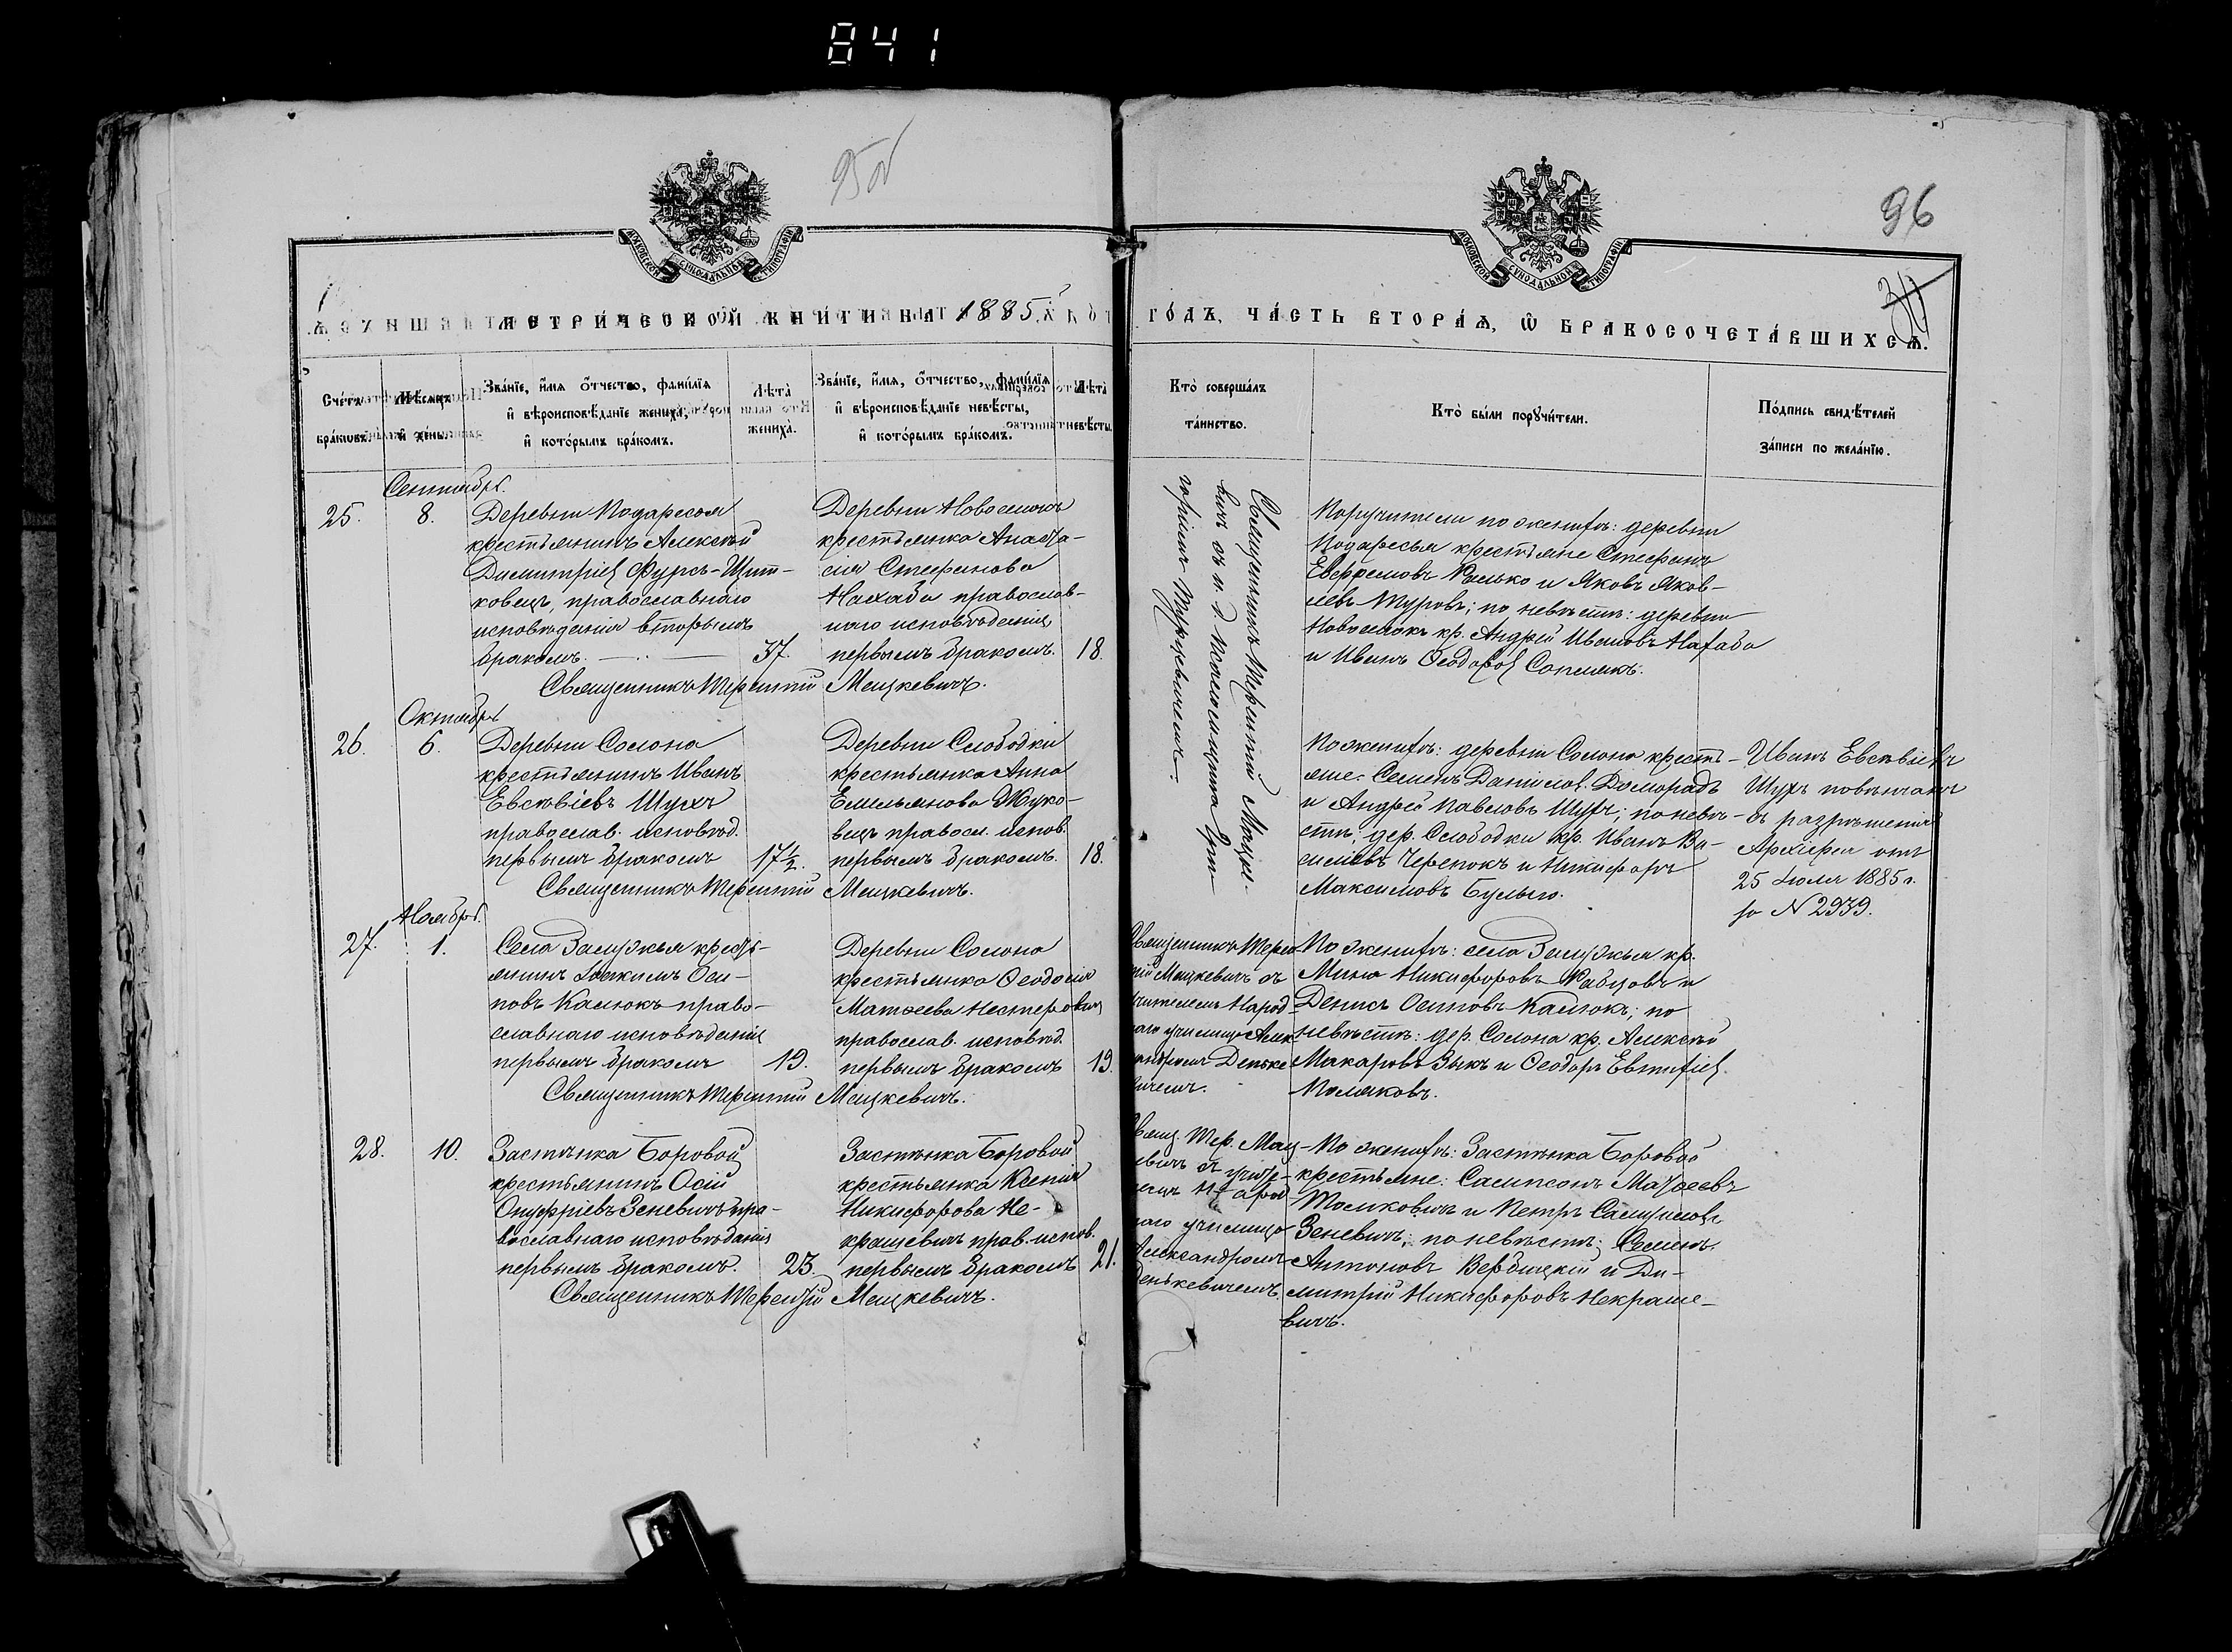 841
95об
96
МОСКОВСКОЙ СѴНОДАЛЬНОЙ ТИПОГРАФІИ
МОСКОВСКОЙ СѴНОДАЛЬНОЙ ТИПОГРАФІИ
МЕТРИ́ЧЕСКОЙ КНИ́ГИ НА 1885й
ГО́ДЪ, ЧА́СТЬ ВТОРА́Я, Ѡ БРАКОСОЧЕТА́ВШИХСЯ.
Сче́тъ бра́ковъ.
Мѣ́сяцъ и де́нь.
Зва́нїе, и́мя, о́тчество, фами́лїя и вѣроисповѣ́данїе жениха̀, и кото́рымъ бра́комъ.
Лѣ̀та жениха̀.
Зва́нїе, и́мя, о́тчество, фами́лїя и вѣроисповѣ́данїе невѣ́сты, и кото́рымъ бра́комъ.
Лѣ̀та невѣ́сты.
Кто̀ соверша́лъ та́инство.
Кто̀ бы́ли порꙋчи́тели.
По́дпись свидѣ́телей за́писи по жела́нїю.
Сентябрь.
25.
8.
Деревни Подаресья
крестьянинъ Алексѣй
Димитріев Фурсъ-Щит-
ковецъ, православнаго
исповѣданія вторымъ
бракомъ.
37.
Деревни Новоселокъ
крестьянка Анаста-
сія Стефанова
Нахаба православ-
наго исповѣданія
первымъ бракомъ.
18.
Священникъ Терентій Мацкевичъ.
Священникъ Терентій Мацке-
вичъ съ и. д. Псаломщика Гри-
горіемъ Турцевичемъ.
Поручители по женихѣ: деревни
Подаресья крестьяне Стефанъ
Ефремовъ и Яковъ Яков-
левъ Туровъ; по невѣстѣ: деревни
Новоселокъ кр. Андрей Ивановъ Нахаба
и Иванъ Ѳеодоров
Октябрь
26.
6.
Деревни Солона
крестьянинъ Иванъ
Евсѣвіевъ Шухъ
православ. исповѣд.
первымъ бракомъ
17½.
Деревни Слободки
крестьянка Анна
Емельянова Жуко-
вецъ правосл. испов.
первымъ бракомъ.
18.
Священникъ Терентій Мацкевичъ.
По женихѣ: деревни Солона кресть-
яне: Семенъ Данилов. Доморадъ
и Андрей Павловъ Шухъ; по невѣ-
стѣ: дер. Слободки кр. Иванъ Ва-
силіевъ Черепокъ и Никифоръ
Максимовъ Булыго.
Иванъ Евсѣвіевъ
Шухъ повѣнчанъ
съ разрѣшенія
Архіерея отъ
25 Іюля 1885 г.
за № 2939.
Ноябрь.
27.
1.
Села Залужья кресть-
янинъ Іоакимъ Оси-
повъ Калюкъ право-
славнаго исповѣданія
первымъ бракомъ
19.
Деревни Солона
крестьянка Ѳеодосія
Матѳеева Нестерович
православ. исповѣд.
первымъ бракомъ
19.
Священникъ Терентій Мацкевичъ.
Священникъ Терен-
тій Мацкевичъ съ
учителемъ Народ-
наго училища Алек-
сандромъ Денке-
вичемъ.
По женихѣ: села Залужья кр.
Мина Никифоровъ Рабцовъ и
Денисъ Осиповъ Калюкъ; по
невѣстѣ: дер. Солона кр. Алексѣй
Макаровъ Зыкъ и Ѳеодоръ Евтихіев.
Поляковъ.
28.
10.
Застѣнка Боровой
крестьянинъ Осій
Онуфріевъ Зеневичъ пра-
вославнаго исповѣданія
первымъ бракомъ.
23.
Застѣнка Боровой
крестьянка Ксенія
Никифорова Не-
крашевичъ прав. испов.
первымъ бракомъ
21.
Священникъ Терентій Мацкевичъ.
Свящ. Тер. Мац-
кевичъ съ учите-
лемъ Народ-
наго училища
Александромъ
Денькевичемъ.
По женихѣ: Застѣнка Боровой
крестьяне: Сампсонъ Матѳеевъ
Толковичъ и Петръ Самуилов.
Зеневичъ; по невѣстѣ: Семенъ
Антоновъ Вербицкій и Ди-
митрій Никифоровъ Некраше-
вичъ.